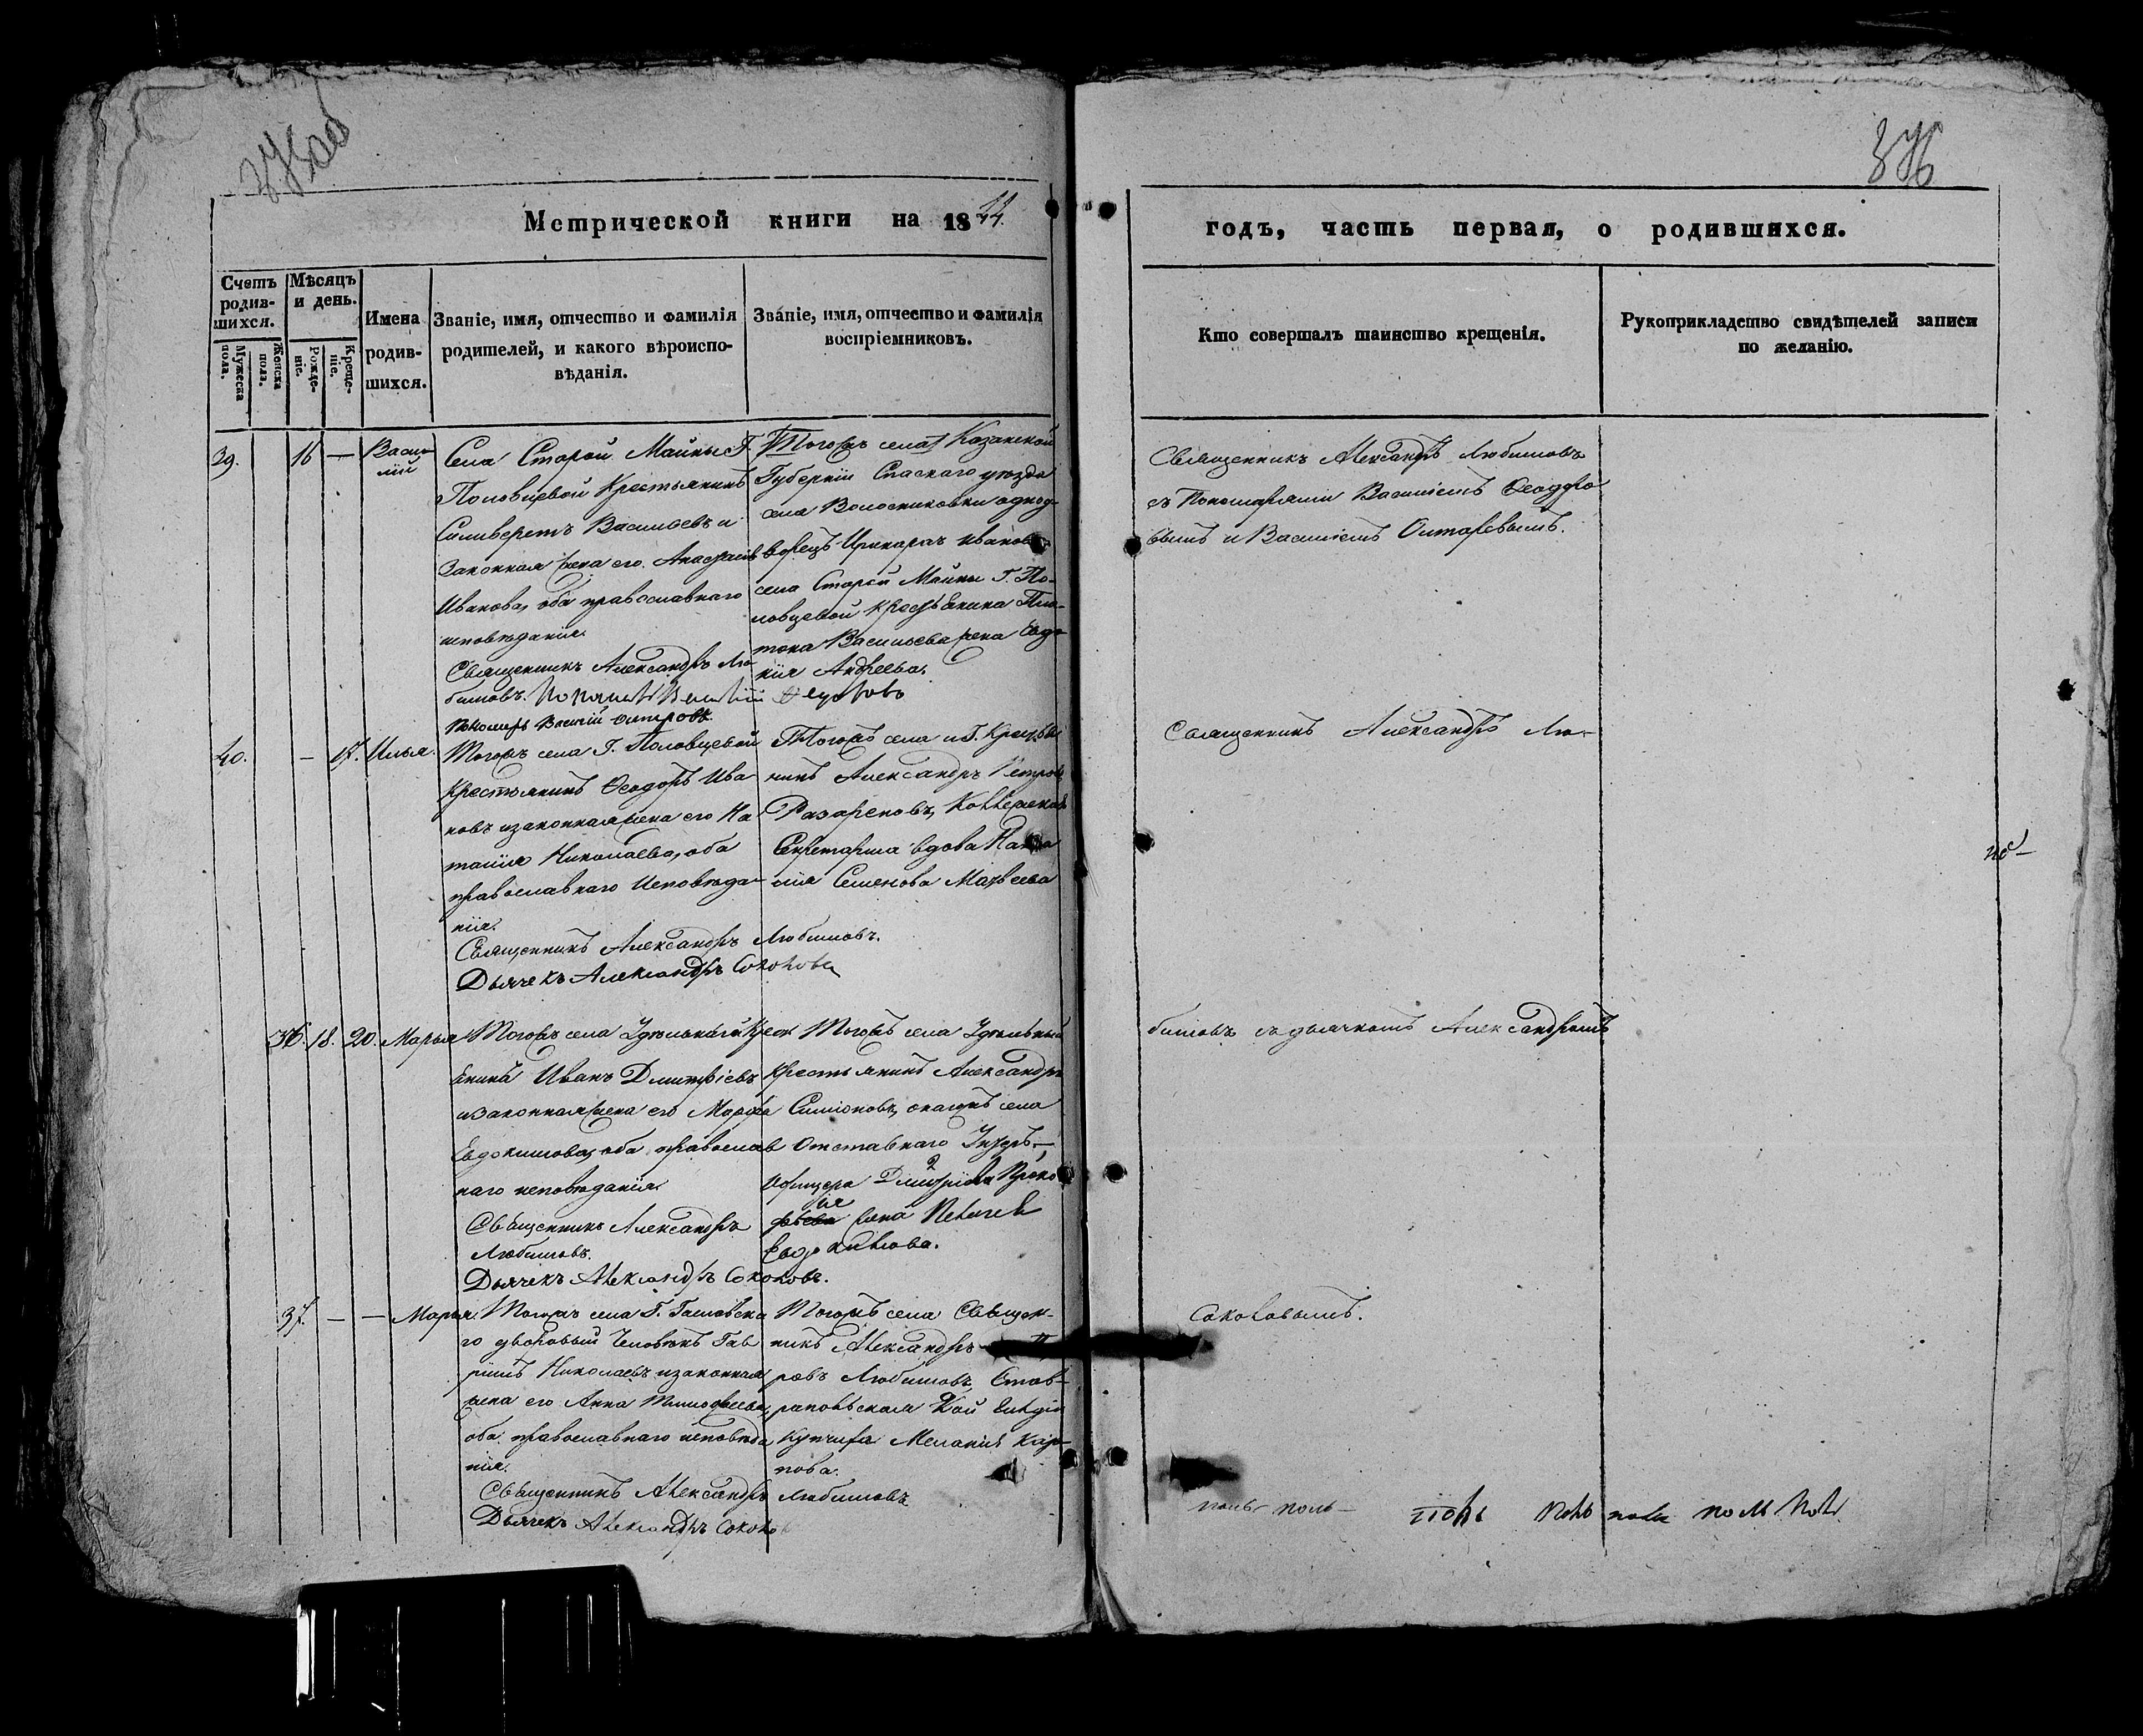 376
Метрической книги на 1844.
годъ, часть первая, о родившихся.
Счетъ родив-
шихся.
Мужеска пола.
Женска пола.
Мѣсяцъ и день.
Рожде-
ніе.
Креще-
ніе.
Имена родив-
шихся.
Званіе, имя, отчество и фамилія
родителей, и какого вѣроиспо-
вѣданія.
Званіе, имя, отчество и фамилія
воспріемниковъ.
Кто совершалъ таинство крещенія.
Рукоприкладство свидѣтелей записи
по желанію.
39.
16
—
Васи-
лій
Села Старой Майны Г.
Половцевой Крестьянинъ
Сильверстъ Васильевъ и
Законная жена его Анастасія
Иванова, оба православнаго
исповѣданія.
Священникъ Александръ Лю-
бимовъ.
Пономарь Василій
Тогожъ села Казанской
Губерніи Спаскаго уѣзда
села Волостниковки однод-
ворецъ Иванов
села Старой Майны Г. По-
ловцевой крестьянина Пла-
тона Васильева жена Евдо-
кія Андреева.
Священникъ Александръ Любимовъ
съ Пономарями Василіемъ Ѳеодоро
вымъ и Василіемъ
40.
—
17.
Илья.
Тогожъ села Г. Половцевой
Крестьянинъ Ѳеодоръ Ива-
новъ и законная жена его На
талія Николаева, оба
православнаго Исповѣда-
нія.
Священникъ Александръ Любимовъ.
Дьячекъ Александръ Соколовъ
Тогожъ села и Г. Крестья
нинъ Александръ Петровъ
Секретарша вдова Ната
лія Семенова Матвеева
Священникъ Александръ Лю-
36.
18.
20.
Марья
Тогожъ села Удѣльный Крест
янинъ Иванъ Дмитріевъ
и законная жена его Марфа
Евдокимова, оба православ
наго исповѣданія.
Священникъ Александръ
Любимовъ.
Дьячекъ Александръ Соколовъ.
Тогожъ села Удѣльный
Крестьянинъ Александръ
Симіоновъ, села
Отставнаго Унтеръ-
Офицера Дмитрія Проко
фьева жена Пелагея
Евдокимова.
бимовъ съ дьячкомъ Александромъ
37.
—
—
Марья.
Тогожъ села Г.
го дворовый Человѣкъ Гав
ріилъ Николаевъ и законная
жена его Анна Тимофеева,
оба православнаго исповѣда
нія.
Священникъ Александръ Любимовъ
Дьячекъ Александръ Соколов
Тогожъ села Священ-
никъ Александръ
ровъ Любимовъ, Став-
ропольская
Купчиха Меланія Кар-
пова.
Соколовымъ.
поль- поль- поль поль поль поль поль